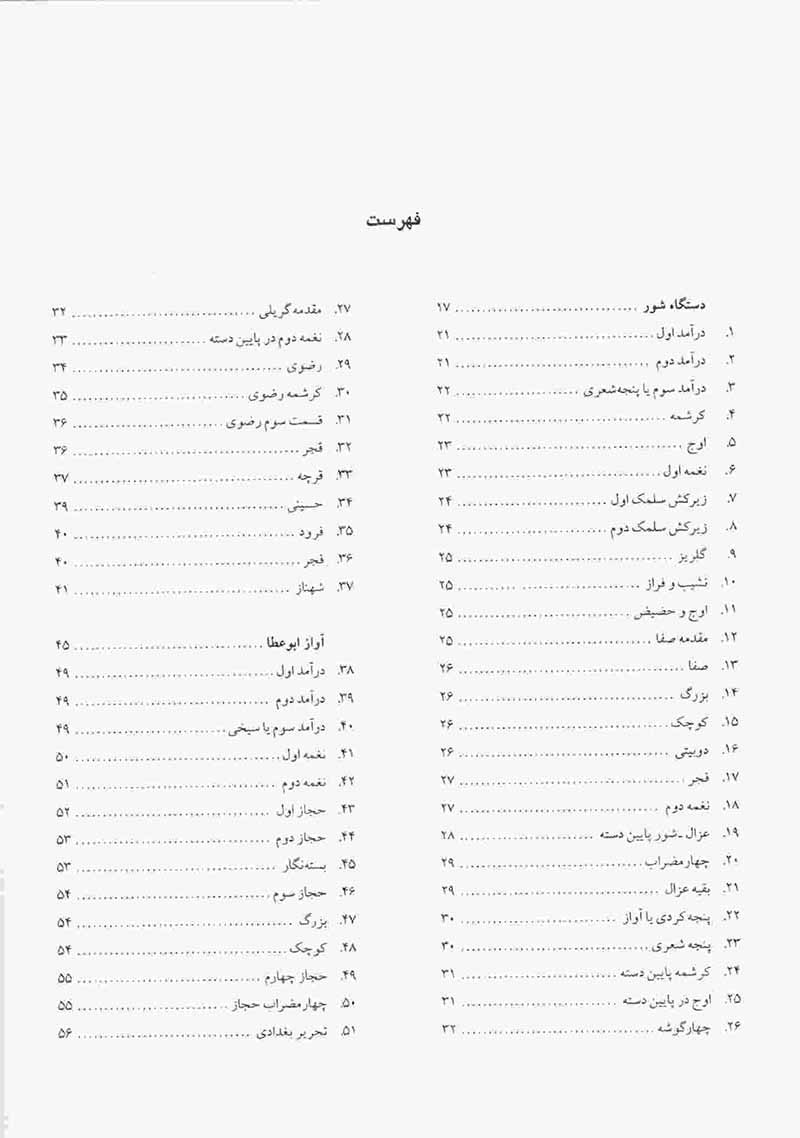 فهرست
دستگاه شور ........................ ۱۷
۱. درآمد اول ........................ ۲۱
۲. درآمد دوم ........................ ۲۱
۳. درآمد سوم یا پنجه‌شعری ........................ ۲۲
۴. کرشمه ........................ ۲۲
۵. اوج ........................ ۲۳
۶. نغمه اول ........................ ۲۳
۷. زیرکش سلمک اول ........................ ۲۴
۸. زیرکش سلمک دوم ........................ ۲۴
۹. گلریز ........................ ۲۵
۱۰. نشیب و فراز ........................ ۲۵
۱۱. اوج و حضیض ........................ ۲۵
۱۲. مقدمه صفا ........................ ۲۵
۱۳. صفا ........................ ۲۶
۱۴. بزرگ ........................ ۲۶
۱۵. کوچک ........................ ۲۶
۱۶. دوبیتی ........................ ۲۶
۱۷. قجر ........................ ۲۷
۱۸. نغمه دوم ........................ ۲۷
۱۹. عزال - شور پایین دسته ........................ ۲۸
۲۰. چهارمضراب ........................ ۲۹
۲۱. بقیه عزال ........................ ۲۹
۲۲. پنجه کردی یا آواز ........................ ۳۰
۲۳. پنجه شعری ........................ ۳۰
۲۴. کرشمه پایین دسته ........................ ۳۱
۲۵. اوج در پایین دسته ........................ ۳۱
۲۶. چهارگوشه ........................ ۳۲
۲۷. مقدمه گریلی ........................ ۳۲
۲۸. نغمه دوم در پایین دسته ........................ ۳۳
۲۹. رضوی ........................ ۳۴
۳۰. کرشمه رضوی ........................ ۳۵
۳۱. قسمت سوم رضوی ........................ ۳۶
۳۲. قجر ........................ ۳۶
۳۳. قرچه ........................ ۳۷
۳۴. حسینی ........................ ۳۹
۳۵. فرود ........................ ۴۰
۳۶. قجر ........................ ۴۰
۳۷. شهناز ........................ ۴۱
آواز ابوعطا ........................ ۴۵
۳۸. درآمد اول ........................ ۴۹
۳۹. درآمد دوم ........................ ۴۹
۴۰. درآمد سوم یا سیخی ........................ ۴۹
۴۱. نغمه اول ........................ ۵۰
۴۲. نغمه دوم ........................ ۵۱
۴۳. حجاز اول ........................ ۵۲
۴۴. حجاز دوم ........................ ۵۳
۴۵. بسته‌نگار ........................ ۵۳
۴۶. حجاز سوم ........................ ۵۴
۴۷. بزرگ ........................ ۵۴
۴۸. کوچک ........................ ۵۴
۴۹. حجاز چهارم ........................ ۵۵
۵۰. چهارمضراب حجاز ........................ ۵۵
۵۱. تحریر بغدادی ........................ ۵۶